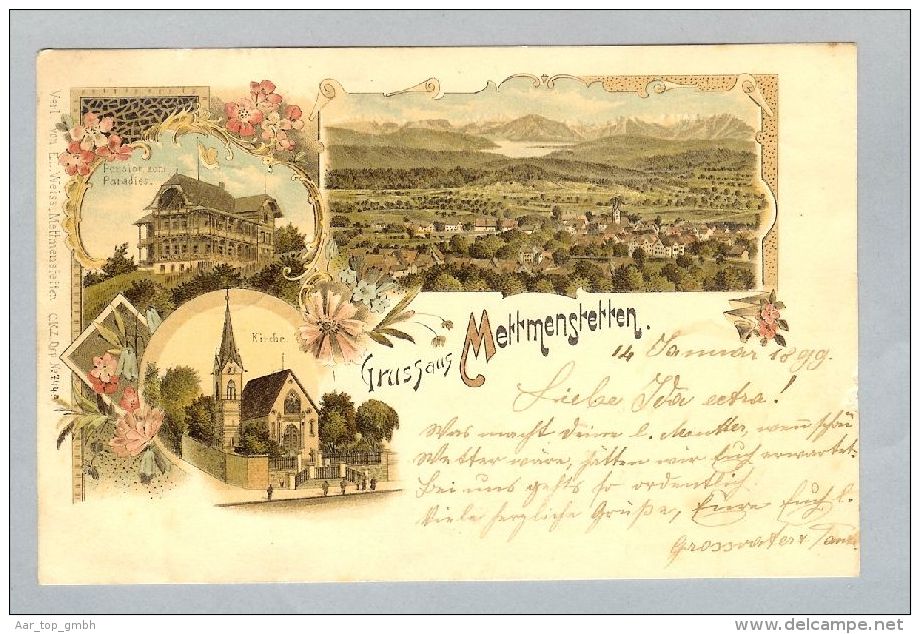 Pension zum
Paradies.
Kirche.
Gruss aus Mettmenstetten.
14 Januar 1899.
Liebe Ida extra!
Was macht deine l. Mutter, wenn schön
Wetter wäre, hätten wir Euch erwartet.
Bei uns gehts so ordentlich.
Viele herzliche Grüße, Eure Euch l.
Grossvater &
Verl. von E. Weiss, Mettmenstetten.
Aar_top_gmbh
www.delcampe.net